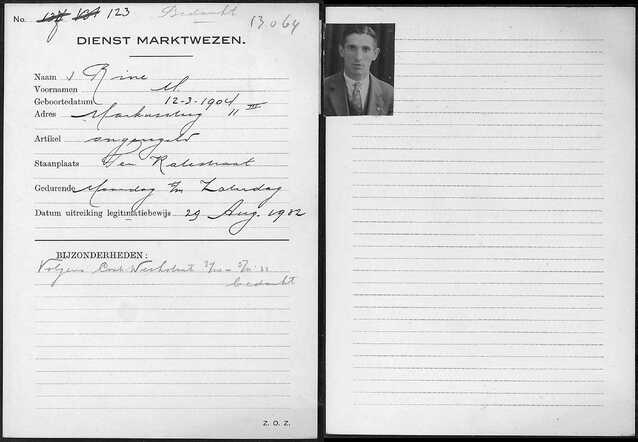 No. 137 134 123 Bedankt 13064
DIENST MARKTWEZEN.
Naam Rine
Voornamen M.
Geboortedatum 12-3-1904
Adres 11 III
Artikel ongeregeld
Staanplaats Ten Katestraat
Gedurende Maandag t/m Zaterdag
Datum uitreiking legitimatiebewijs 29 Aug. 1932
BIJZONDERHEDEN:
Volgens
bedankt
Z. O. Z.